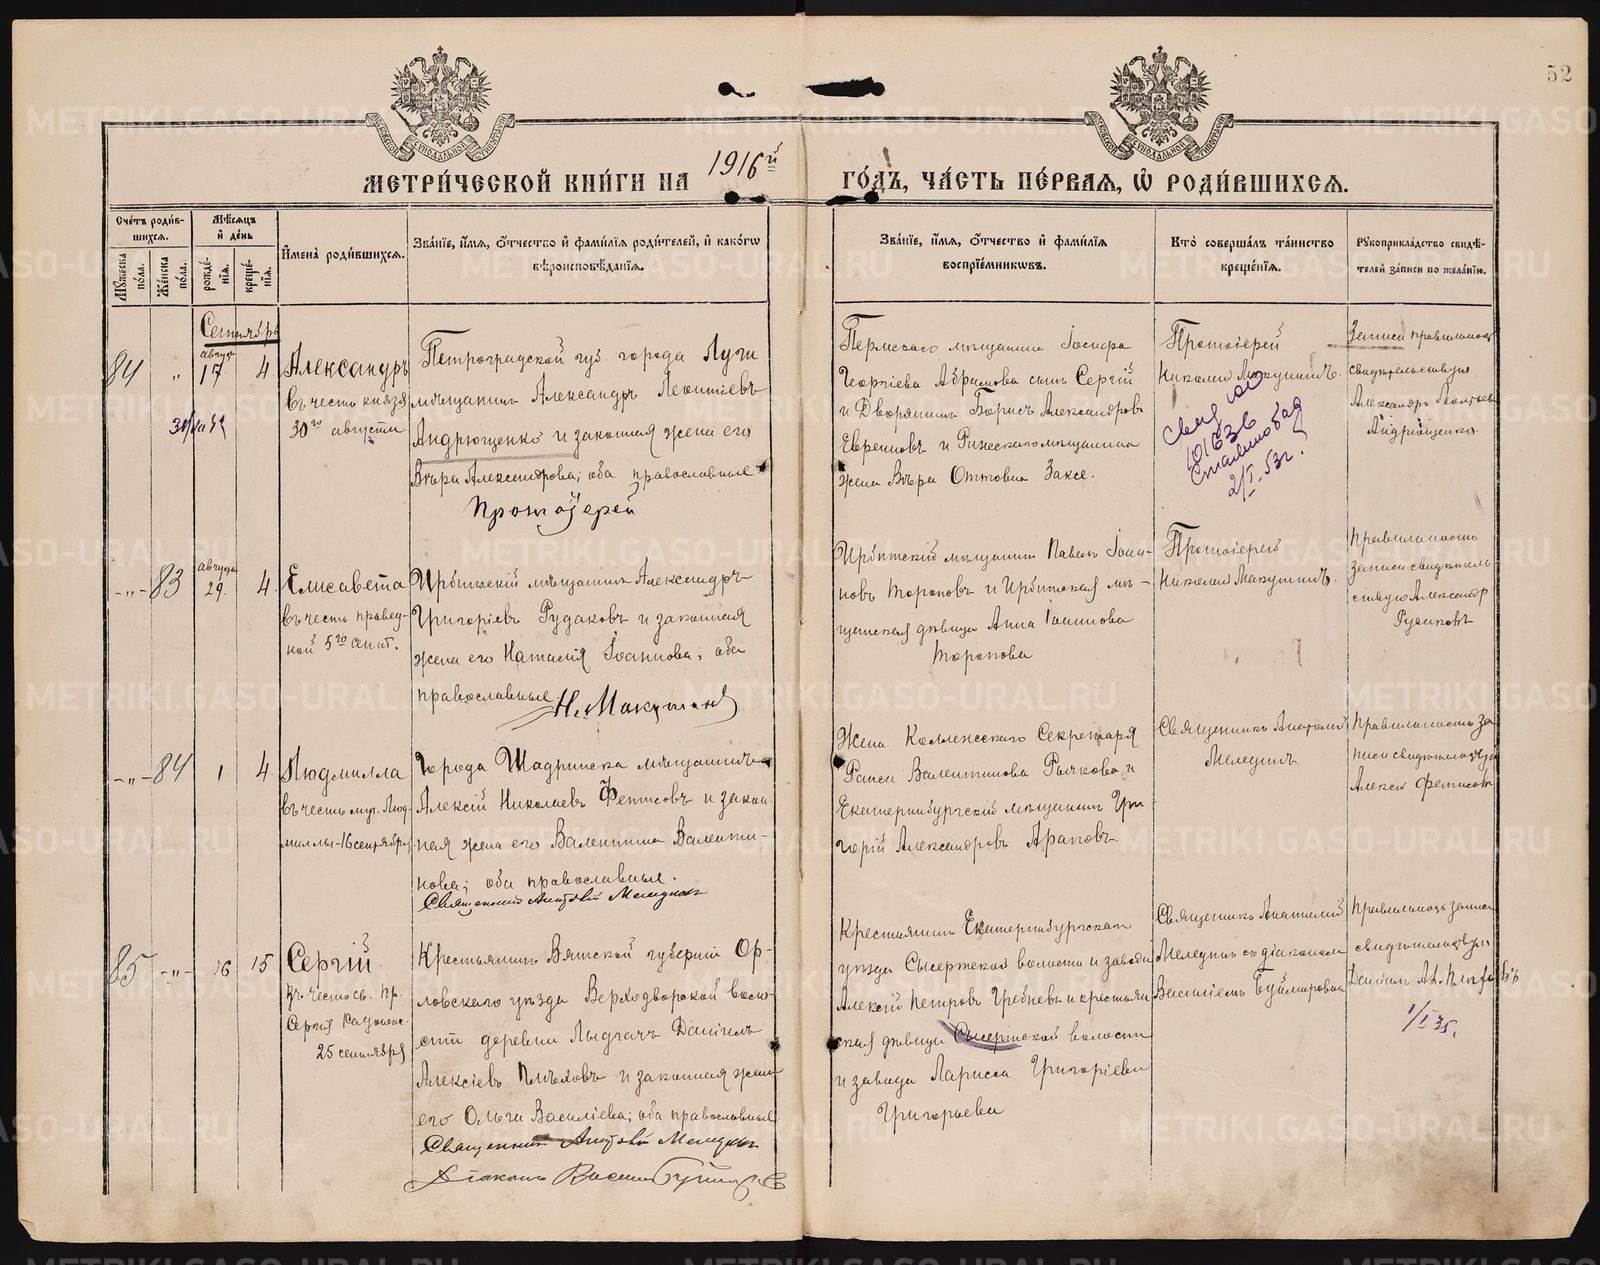 52
МЕТРИ́ЧЕСКОЙ КНИ́ГИ НА 1916й ГО́ДЪ, ЧА́СТЬ ПЕ́РВАЯ, Ѿ РОДИ́ВШИХСЯ.
Сче́тъ роди́в-
шихся.
Мѣ́сяцъ
и҆ де́нь
Му́жеска
по́ла.
Же́нска
по́ла.
рожде́-
нїя.
креще́-
нїя.
И҆мена̀ роди́вшихся.
Зва́нїе, и҆́мя, ѻ҆́тчество и҆ фами́лїя роди́телей, и҆ како́гѡ
вѣроисповѣ́данїя.
Зва́нїе, и҆́мя, ѻ҆́тчество и҆ фами́лїя
воспрїе́мникѡвъ.
Кто̀ соверша́лъ та́инство
креще́нїя.
Рꙋкоприкла́дство свидѣ́-
телей за́писи по жела́нїю.
Сентябрь
84
"
август
17
4
Александръ
въ честь князя
30го августа
Петроградской губ. города Луги
мѣщанинъ Александръ Леонтіевъ
Андрющенко и законная жена его
Вѣра Александрова; оба православные
Протоіерей
Пермскаго мѣщанина Іосифа
Георгіева Абрамова сынъ Сергій
и Дворянинъ Борисъ Александровъ
Евреиновъ и Рижскаго мѣщанина
жена Вѣра Оттовна Заксе.
Протоіерей
Николай Макушинъ.
101636
Сталинобад
2/I-53г.
Записи правильность
свидѣтельствую
Александръ Леонтьев
Андрющенко.
-"-
83
августа
29.
4.
Елисавета
въ честь правед-
ной 5го сент.
Ирбитскій мѣщанинъ Александръ
Григоріевъ Рудаковъ и законная
жена его Наталія Іоаннова; оба
православные
Н. Макушинъ
Ирбитскій мѣщанинъ Павелъ Іоан-
новъ Тороповъ и Ирбитская мѣ-
щанская дѣвица Анна Іоаннова
Торопова
Протоіерей
Николай Макушинъ.
Правильность
записи свидѣтель-
ствую Александр
Рудаковъ
-"-
84
1
4.
Людмилла
въ честь муч. Люд-
миллы-16 сентября
Города Шадринска мѣщанинъ
Алексій Николаевъ Фетисовъ и закон-
ная жена его Валентина Валенти-
нова; оба православные.
Священникъ Анатолій Мелединъ
Жена Коллежскаго Секретаря
Раиса Валентинова Рычкова и
Екатеринбургскій мѣщанинъ Гри
горій Александровъ Араповъ.
Священникъ Анатолій
Мелединъ.
Правильность за
писи свидѣтельствую
Алексѣй Фетисовъ
85
-"-
16
15
Сергій.
въ честь св. пр.
Сергія Радонежс.
25 сентября
Крестьянинъ Вятской губерніи Ор-
ловскаго уѣзда Верходворской воло-
сти деревни Лыдгачъ Даніилъ
Алексіевъ Плѣховъ и законная жена
его Ольга Василіева; оба православные
Священникъ Анатолій Меледин
Діаконъ Василій
Крестьянинъ Екатеринбургскаго
уѣзда Сысертской волости и завода
Алексій Петровъ Гребневъ и крестьян
ская дѣвица Сысертской волости
и завода Лариса Григоріева
Григорьева
Священникъ Анатолій
Мелединъ съ діакономъ
Василіемъ
Правильность записи
свидѣтельствую
Даніилъ Ал. Плѣховъ
1/I 35.